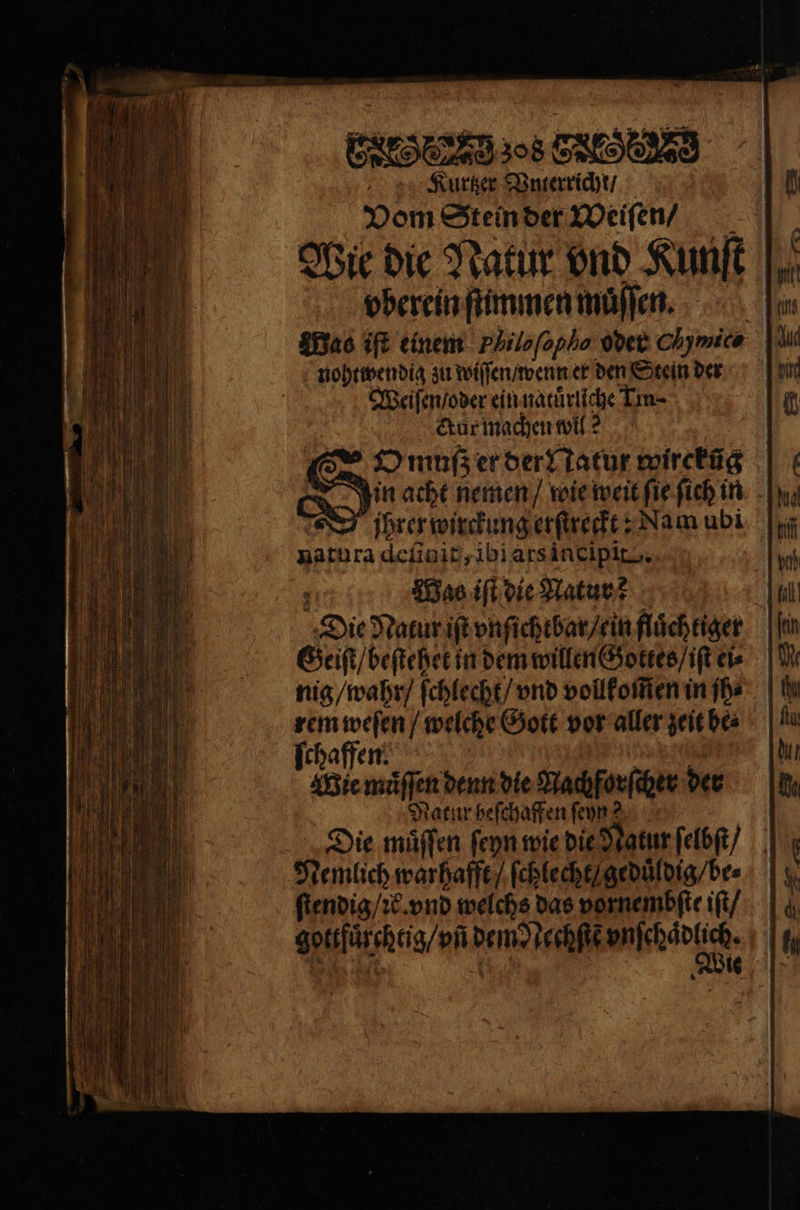 308
Kurtzer Vnterricht/
Vom Stein der Weiſen/
Wie die Natur vnd Kunſt
vberein ſtimmen muͤſſen.
Was iſt einem Philoſopho oder Chymico
nohtwendig zu wiſſen/wenn er den Stein der
Weiſen/oder ein natuͤrliche Tin-
ctur machen wil?
SO muſz er der Natur wirckūg
in acht nemen/ wie weit ſie ſich in
jhrer wirckung erſtreckt: Nam ubi
natura deſinit, ibi ars incipit.
Was iſt die Natur?
Die Natur iſt vnſichtbar/ein fluͤchtiger
Geiſt/beſtehet in dem willen Gottes/iſt ei⸗
nig/wahr/ ſchlecht/ vnd vollkom̃en in jh⸗
rem weſen/ welche Gott vor aller zeit be⸗
ſchaffen.
Wie muͤſſen denn die Nachforſcher der
Natur beſchaffen ſeyn?
Die muͤſſen ſeyn wie die Natur ſelbſt/
Nemlich warhafft/ ſchlecht/geduͤldig/be⸗
ſtendig/ꝛc. vnd welchs das vornembſte iſt/
gottfuͤrchtig/vñ dem Nechſtē vnſchaͤdlich.
Wie